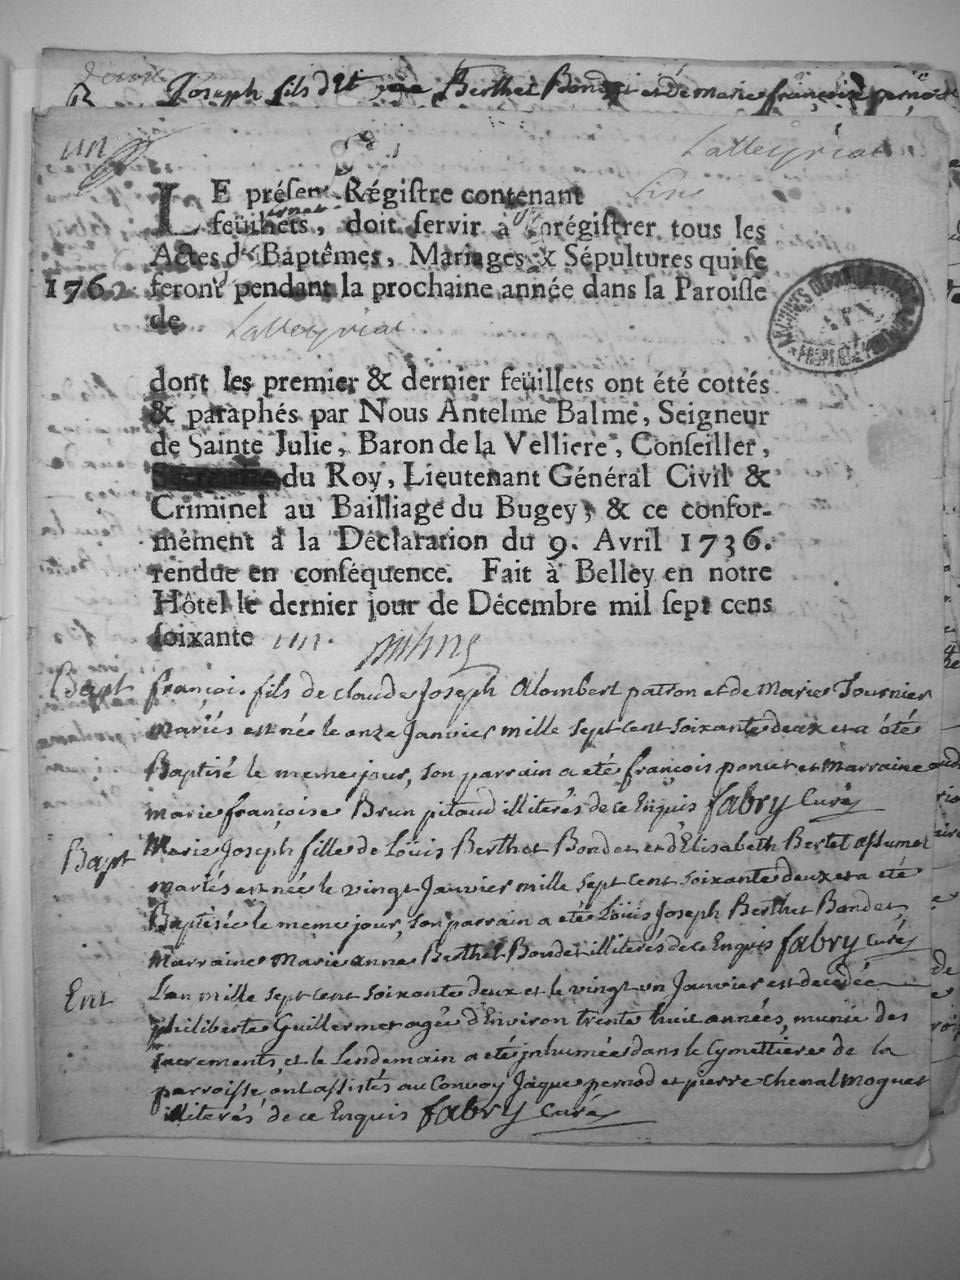 Joseph fils d Berthet Bondet et de marie françoise pernod
un
Lalleyriat
LE présent Régistre contenant
feüillets, doit servir à enrégistrer tous les
Actes de Baptêmes, Mariages & Sépultures qui se
1762 feront pendant la prochaine année dans la Paroisse
de Lalleyriat
dont les premier & dernier feüillets ont été cottés
& paraphés par Nous Antelme Balme, Seigneur
de Sainte Julie, Baron de la Velliere, Conseiller,
du Roy, Lieutenant Général Civil &
Criminel au Bailliage du Bugey, & ce confor-
mément à la Déclaration du 9. Avril 1736.
rendue en conséquence. Fait à Belley en notre
Hôtel le dernier jour de Décembre mil sept cens
soixante un. Balme
Bapt françois fils de claude Joseph Alombert patron et de Marie Tournier
mariés est né le onze Janvier mille sept cent soixante deux et a été
Baptisé le meme jour, son parrain a eté françois poncet et Marraine
marie françoise Brun pitaud illiterés de ce Enquis fabry Curé
Bapt Marie Joseph fille de Loüis Berthet Bondet et d'Elisabeth Bertet assumel
mariés est née le vingt Janvier mille sept cent soixante deux et a été
Baptisée le meme jour, son parrain a eté Loüis Joseph Berthet Bondet,
Marraine Marie anne Berthet Bondet illiterés de ce Enquis fabry curé
Ent L'an mille sept cent soixante deux et le vingt un Janvier est decedée
philiberte Guillermet agée d'Environ trente huit années, munie des
sacrements, et le Lendemain a eté inhumée dans le Cymettiere de la
parroisse, ont assistés au Convoy Jaque pernod et pierre chenal moguet
illiterés de ce Enquis fabry curé